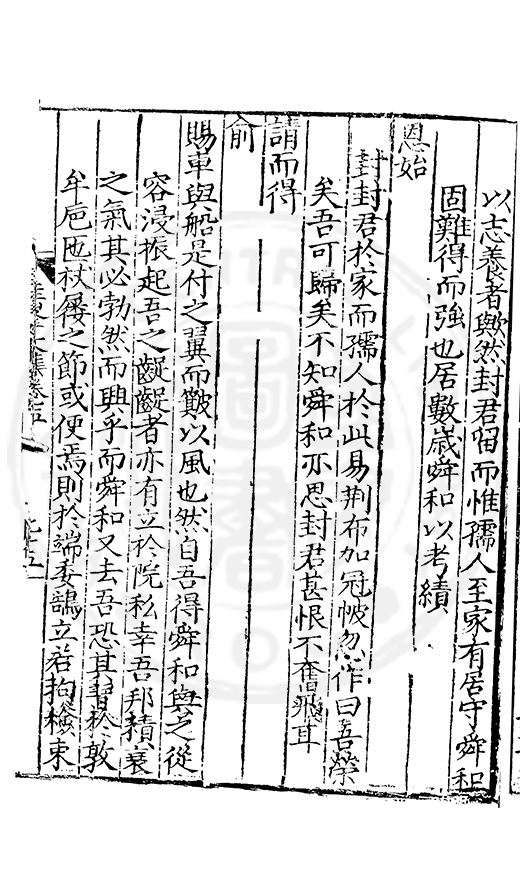 以志養者歟然封君留而惟孺人至家有居守舜和
固難得而強也居數歲舜和以考績
恩始
封封君於家而孺人於此易荆布加冠帔忽作曰吾榮
矣吾可歸矣不知舜和亦思封君甚恨不奮飛耳
請而得
俞
賜車與船是付之翼而䟆以風也然自吾得舜和與之從
容浸振起吾之齪齪者亦有立於院私幸吾邦積衰
之氣其必勃然而興乎而舜和又去吾恐其習於敦
牟巵匜杖屨之節或便焉則於端委鵠立若拘檢束